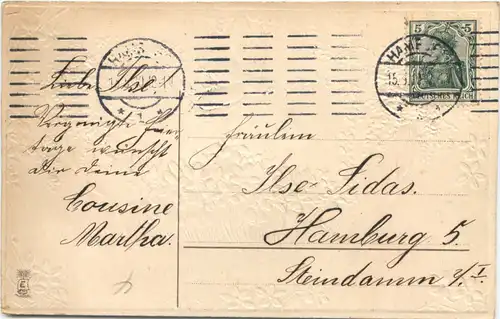 Liebe Ilse!
Vergnügte Feier-
tage wünscht
Dir Deine
Cousine
Martha.
Fräulein
Ilse Sidas.
Hamburg 5.
Steindamm I.
5 5
DEUTSCHES REICH
15.